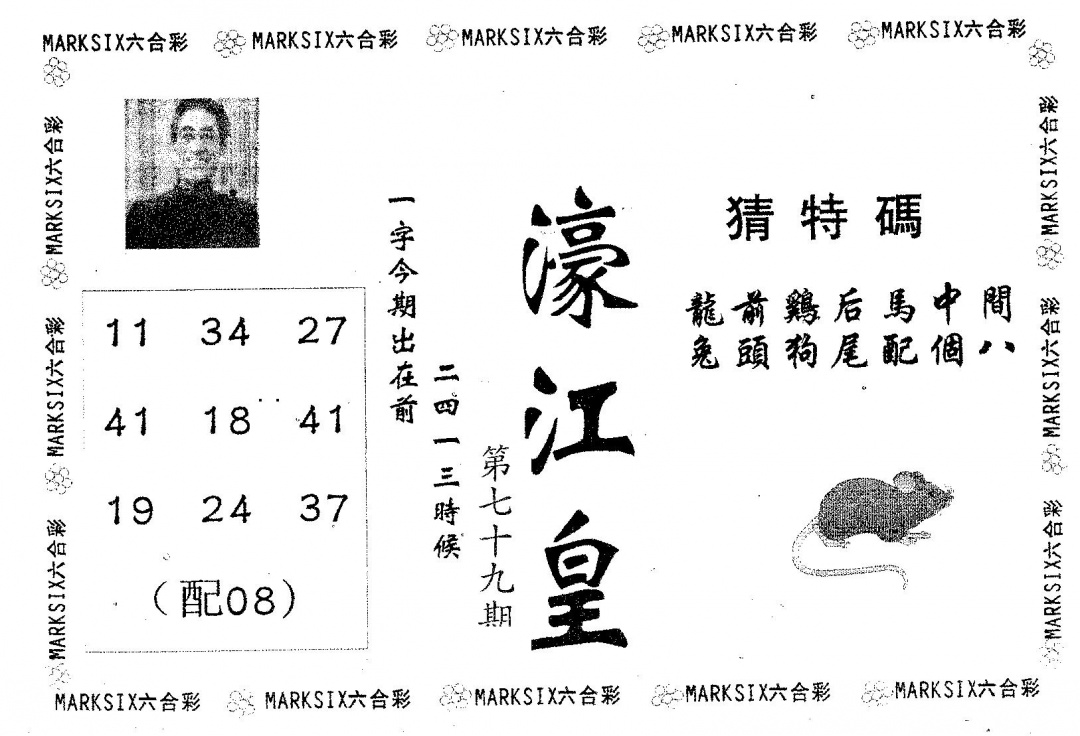 MARKSIX六合彩 MARKSIX六合彩 MARKSIX六合彩 MARKSIX六合彩 MARKSIX六合彩
MARKSIX六合彩
MARKSIX六合彩
MARKSIX六合彩
11 34 27
41 18 41
19 24 37
(配08)
一字今期出在前
二四一三時候
第七十九期
濠江皇
猜特碼
龍前鷄后馬中間
兔頭狗尾配個八
MARKSIX六合彩
MARKSIX六合彩
MARKSIX六合彩
MARKSIX六合彩 MARKSIX六合彩 MARKSIX六合彩 MARKSIX六合彩 MARKSIX六合彩